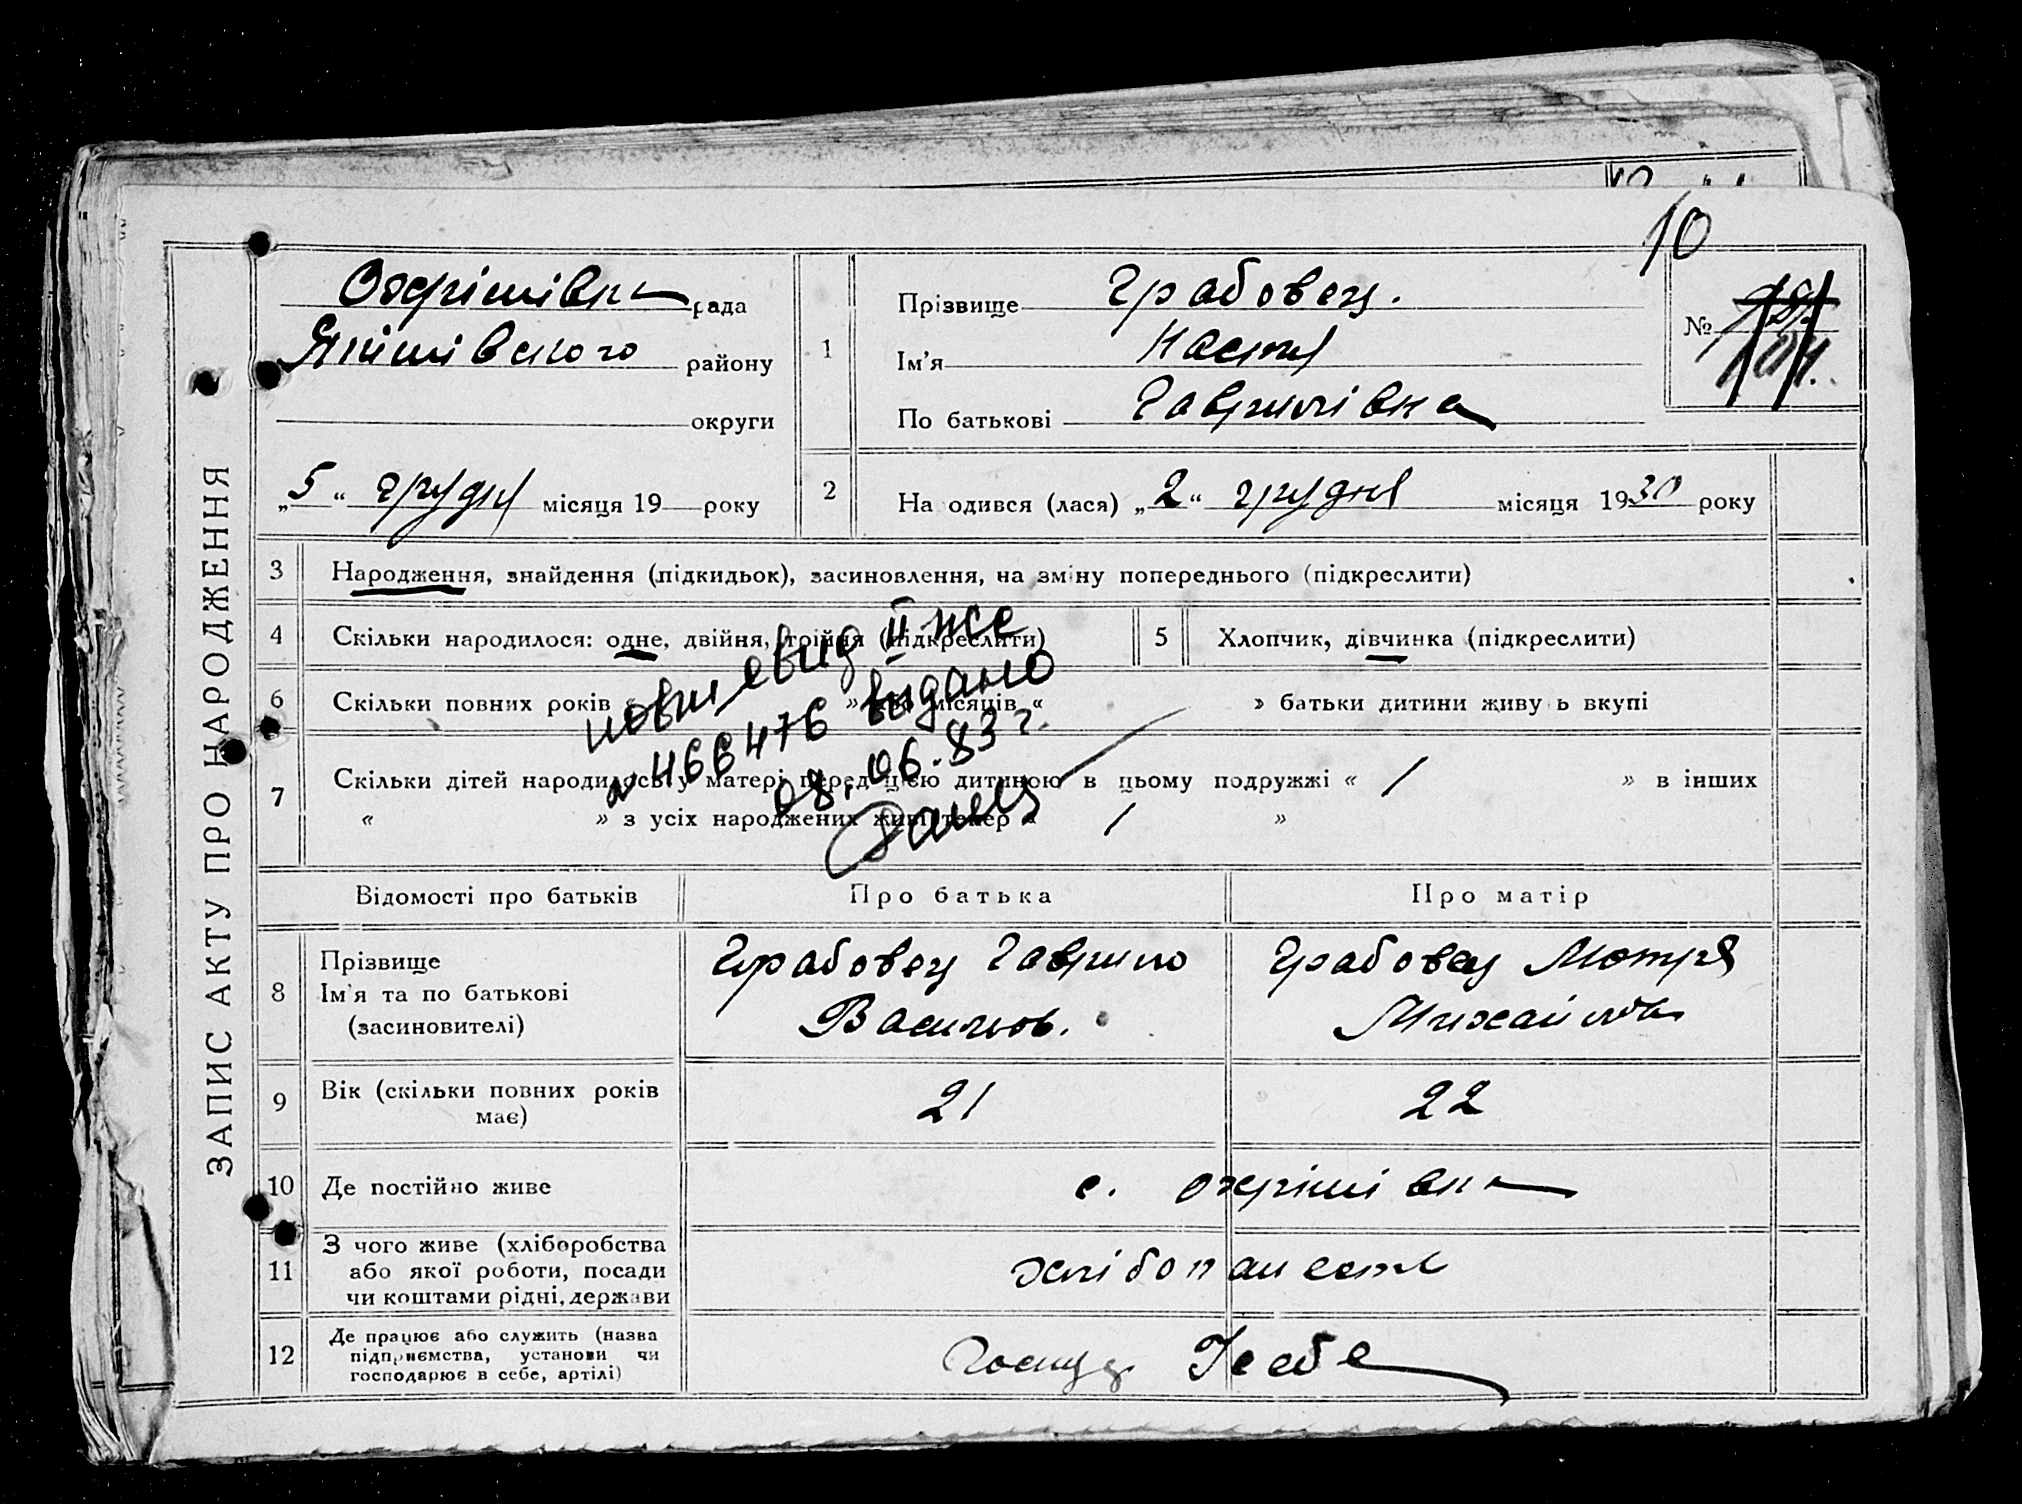 10
Охрімівка рада
Якимівського району
округи
„5“ грудня місяця 19 року
1
Прізвище Грабовец.
Ім'я Настя
По батькові Гаврилівна
№
2
На одився (лася) „2“ грудня місяця 1930 року
ЗАПИС АКТУ ПРО НАРОДЖЕННЯ
3 Народження, знайдення (підкидьок), засиновлення, на зміну попереднього (підкреслити)
4 Скільки народилося: одне, двійня, трійня (підкреслити)
5 Хлопчик, дівчинка (підкреслити)
6 Скільки повних років « » місяців « » батьки дитини живу ь вкупі
7 Скільки дітей народилось у матері перед цією дитиною в цьому подружжі « / » в інших
« » з усіх народжених живі тепер « / »
II же
№ 466476 видано
08.06.83 г.
Відомості про батьків Про батька Про матір
8 Прізвище
Ім'я та по батькові
(засиновителі)
Грабовец Гаврило
Васильов.
Грабовец Мотря
Михайлов
9 Вік (скільки повних років
має)
21 22
10 Де постійно живе с. Охрімівка
11 З чого живе (хліборобства
або якої роботи, посади
чи коштами рідні, держави
хлібопашест
12 Де працює або служить (назва
підприємства, установи чи
господарює в себе, артілі)
Господ. У себе